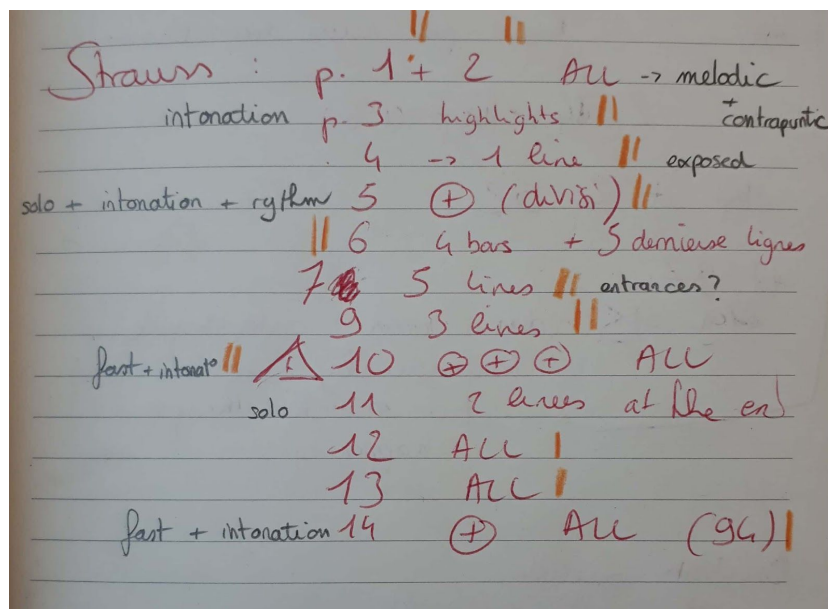 Strauss : p. 1 + 2 ALL -> melodic
intonation p. 3 highlights + contrapuntic
4 -> 1 line exposed
solo + intonation + rythm 5 + (divisi)
6 4 bars + 5 dernieuse lignes
7 5 lines entrances?
9 3 lines
fast + intonat° 10 + + + ALL
solo 11 2 lines at the end
12 ALL
13 ALL
fast + intonation 14 + ALL (94)